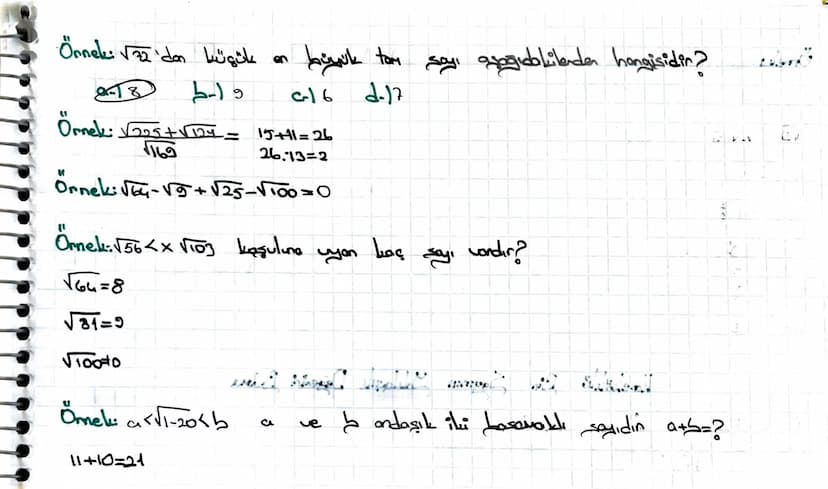 Örnek: √72'den küçük en büyük tam sayı aşağıdakilerden hangisidir?
a-) 8 b-) 9 c-) 6 d-) 7
Örnek: √225+√121 / √169 = 15+11=26
26:13=2
Örnek: √64-√9+√25-√100=0
Örnek: √56<x √103 koşuluna uyan kaç sayı vardır?
√64=8
√81=9
√100=10
Örnek: a<√120<b a ve b ardaşık iki basamaklı sayıdır a+b=?
11+10=21